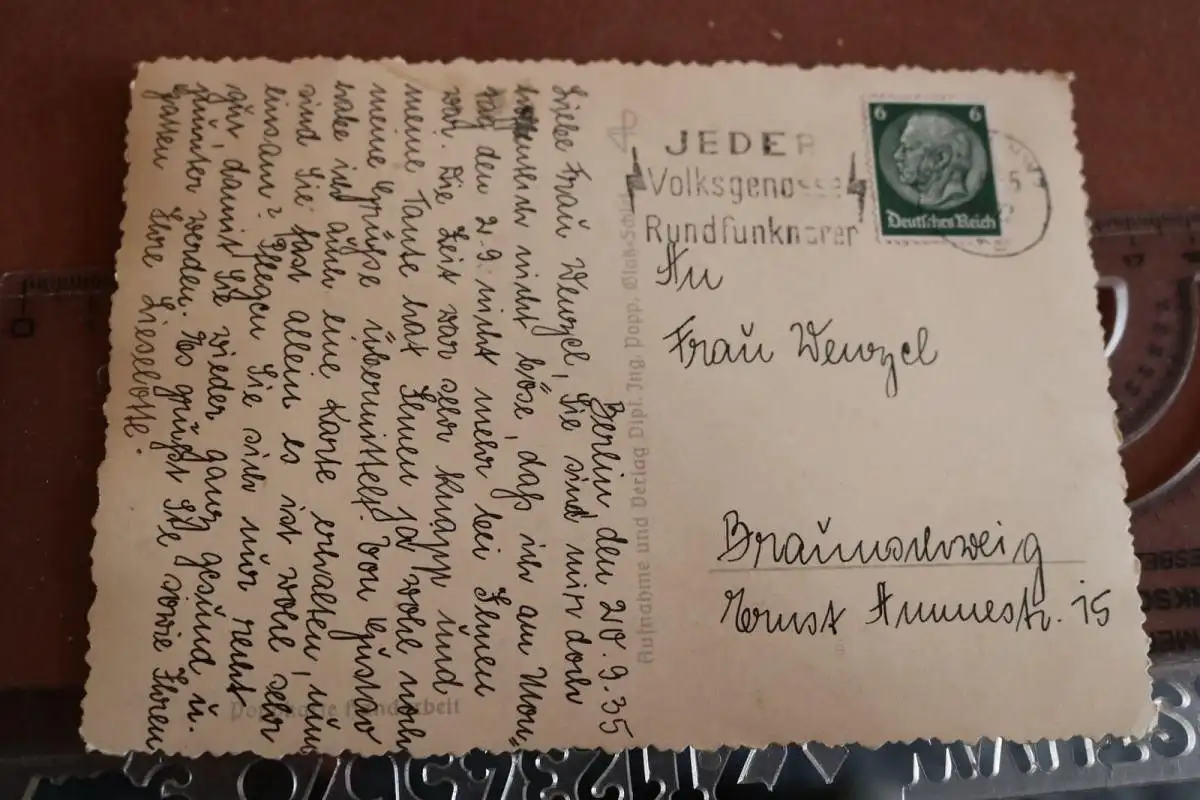 Berlin den 20.9.35
Liebe Frau Wenzel, Sie sind mir doch
hoffentlich nicht böse, daß ich am Mon-
tag den 2.9. nicht mehr bei Ihnen
war. Die Zeit war sehr knapp und
meine Tante hat Ihnen ja wohl noch
meine Grüße übermittelt. Von Gustav
habe ich auch eine Karte erhalten, nun
sind Sie fast allein es ist wohl sehr
einsam? Pflegen Sie sich nur recht
gut, damit Sie wieder ganz gesund u.
munter werden. Es grüßt Sie sowie Ihren
Gatten Ihre Lieselotte.
Aufnahme und Verlag Dipl. Ing. Popp,
Handarbeit
JEDER
Volksgenosse
Rundfunkhörer
6 6
Deutsches Reich
An
Frau Wenzel
Braunschweig
Ernst Ammestr. 15